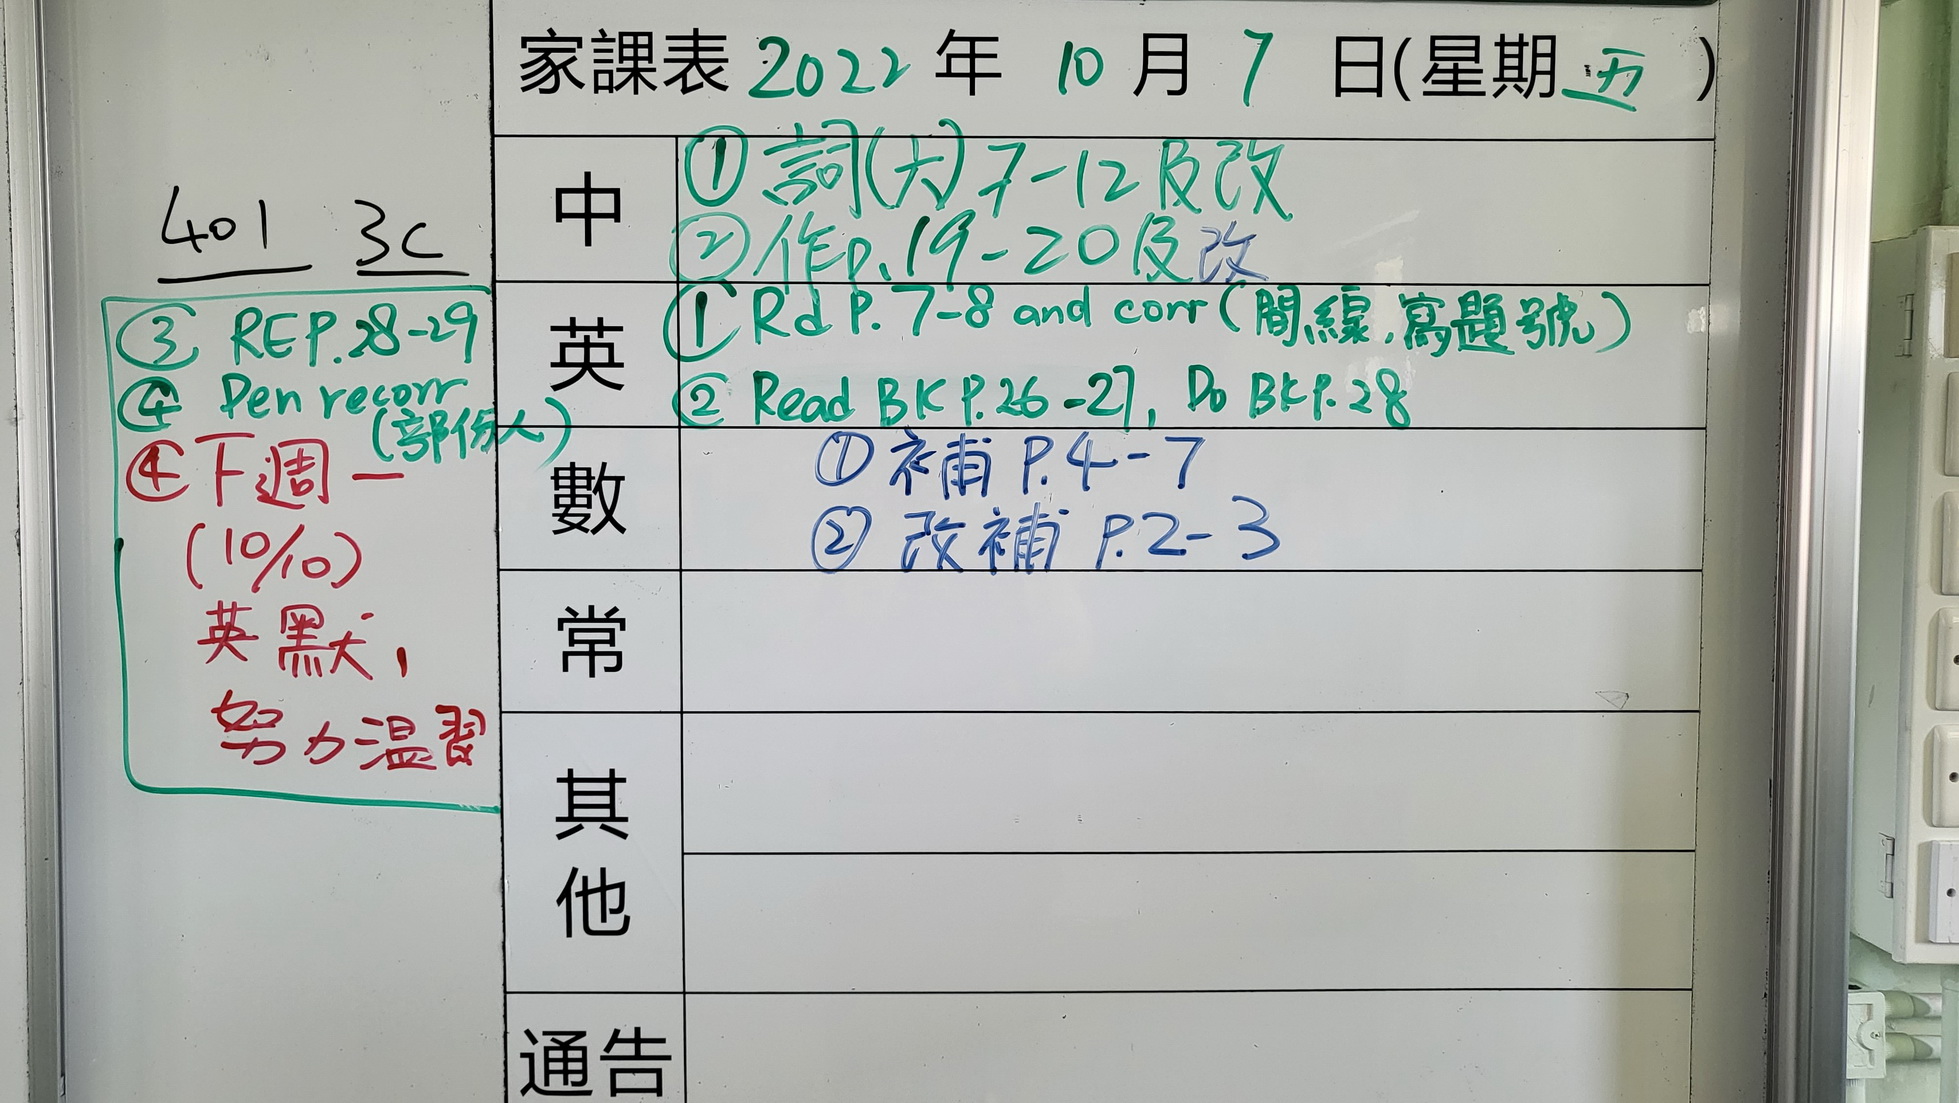 家課表 2022 年 10 月 7 日(星期 五 )
401 3C
中
① 詞(大) 7-12 及改
② 作 p.19-20 及改
英
① Rd P. 7-8 and corr (間線,寫題號)
② Read BK P.26-27, Do BK P.28
③ RE P.28-29
④ Pen recorr
(部份人)
④ 下週一
(10/10)
英默,
努力温習
數
① 補 P.4-7
② 改補 P.2-3
常
其他
通告